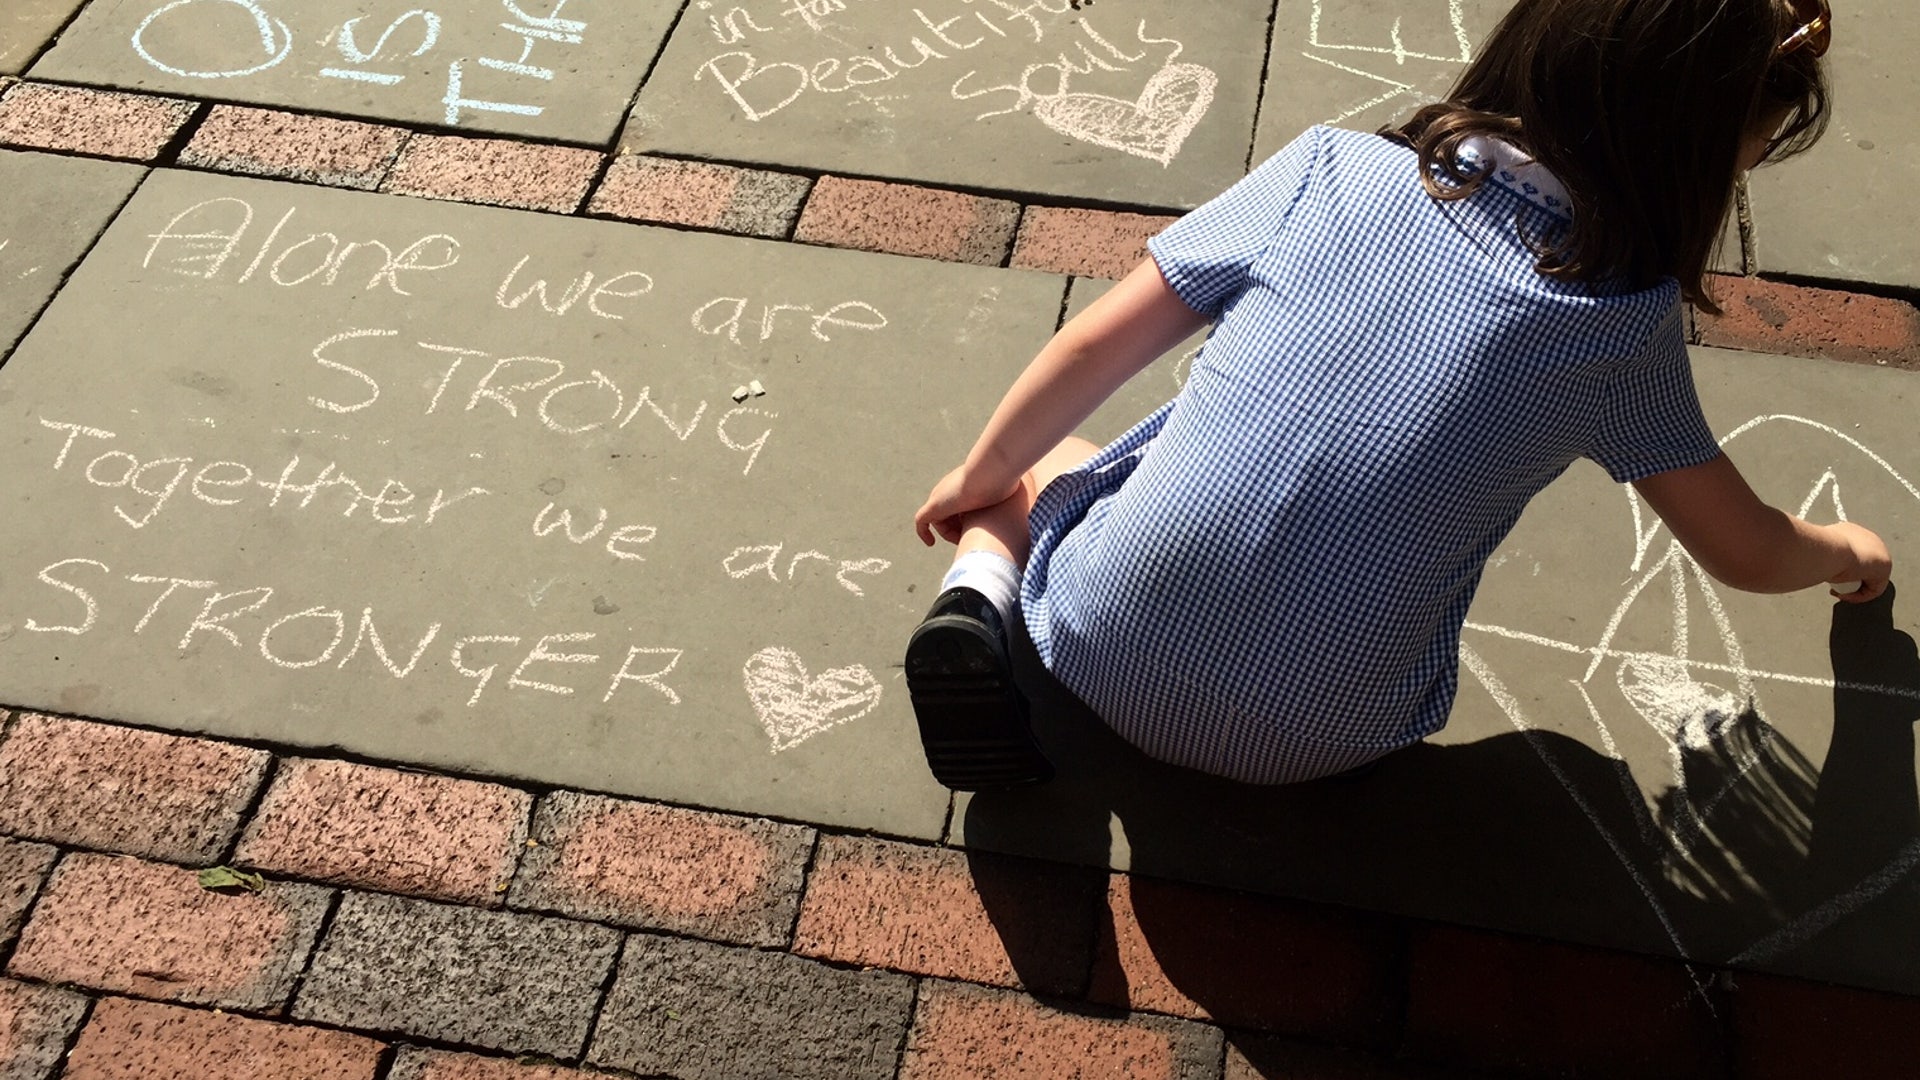 IS
in
Beautiful
Souls
Alone we are
STRONG
Together we are
STRONGER